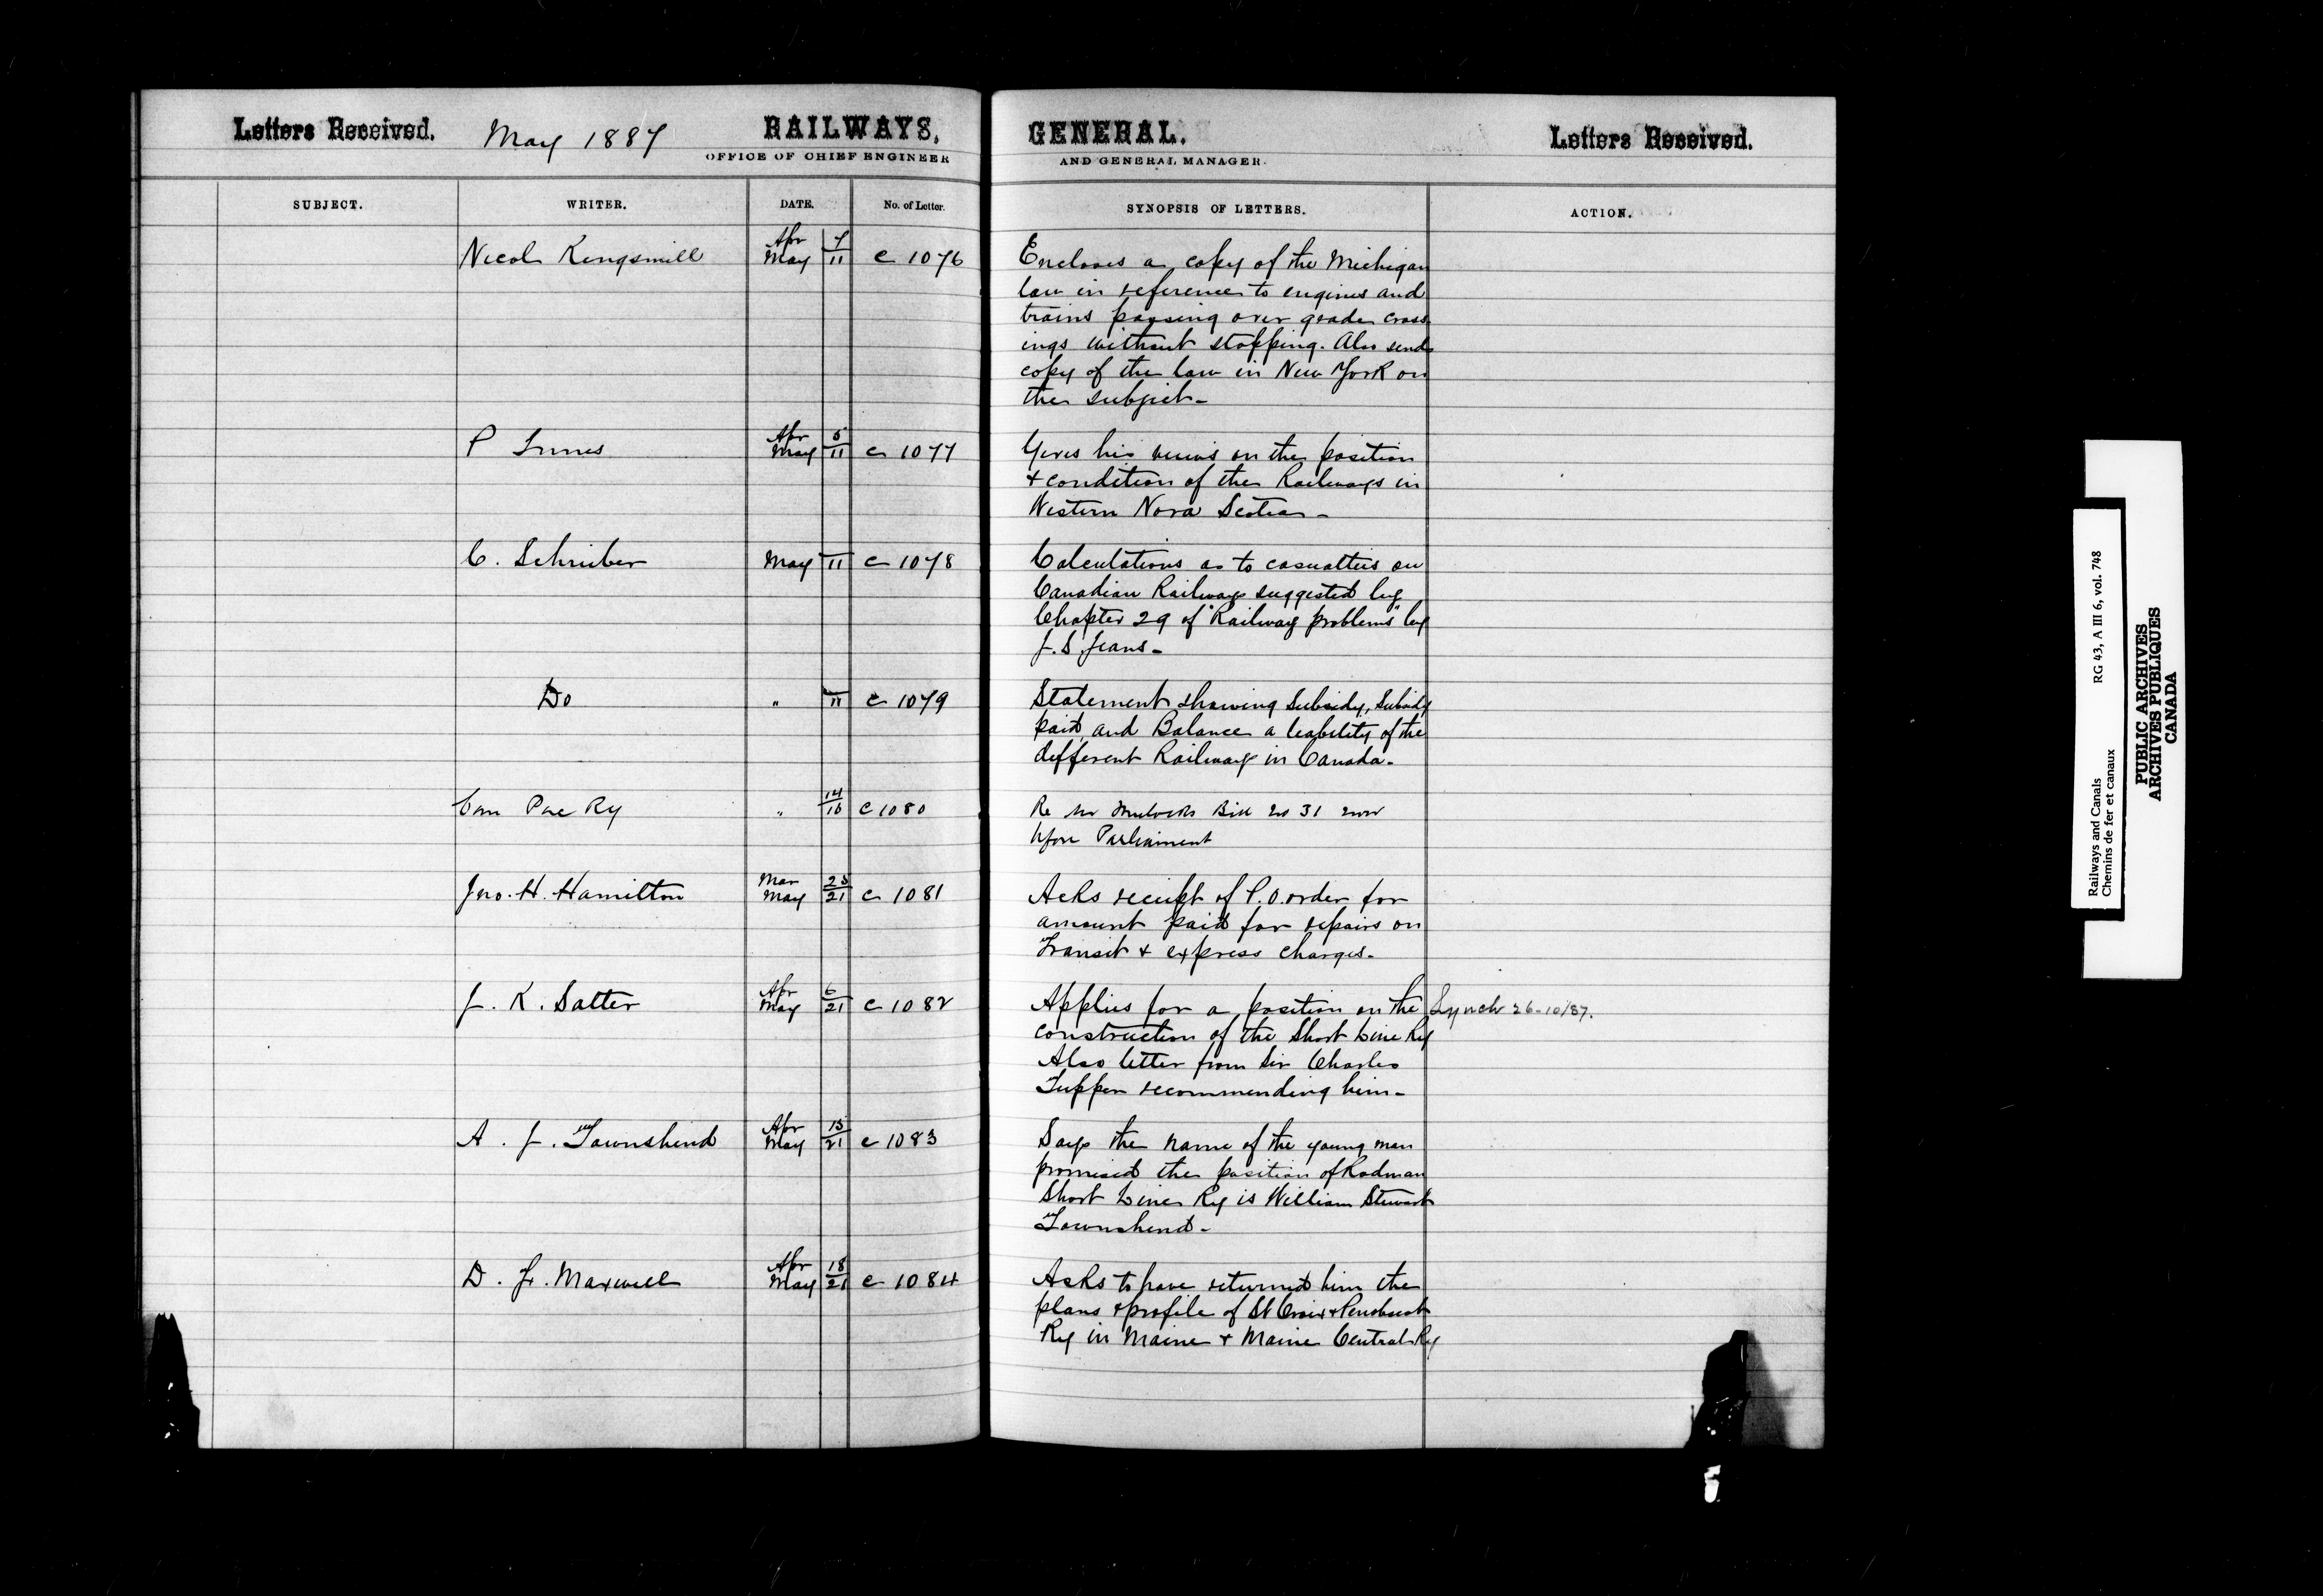 Letters Received. May 1887 RAILWAYS,
OFFICE OF CHIEF ENGINEER
GENERAL. Letters Received.
AND GENERAL MANAGER.
SUBJECT. WRITER. DATE. No. of Letter. SYNOPSIS OF LETTERS. ACTION.
Nicol Kingsmill Apr 7 May 11 c 1076 Encloses a copy of the Michigan
law in reference to engines and
trains passing over grade cross
ings without stopping. Also sends
copy of the law in New York on
the subject-
P Innes Apr 5 May 11 c 1077 Gives his views on the position
+ condition of the Railways in
Western Nova Scotia-
C. Schreiber May 11 c 1078 Calculations as to casualties on
Canadian Railways suggested by
Chapter 29 of "Railway problems" by
J. S Jeans-
Do " 11 c 1079 Statement showing Subsidy, Subsidy
paid, and Balance a liability of the
different Railways in Canada-
Can Pac Ry " 14 16 C 1080 Re Mr Mulocks Bill No 31 now
bfore Parliament
Jno. H. Hamilton Mar 23 May 21 c 1081 Acks receipt of P.O. order for
amount paid for repairs on
Transit + express charges-
J. K. Salter Apr 6 May 21 c 1082 Applies for a position on the Lynch 26-10/87.
construction of the Short Line Ry
Also letter from Sir Charles
Tupper recommending him-
A. J. Townshend Apr 15 May 21 c 1083 Says the name of the young man
promised the position of Rodman
Short Line Ry is William Stewart
Townshend-
D. F. Maxwell Apr 18 May 21 c 1084 Asks to have returned him the
plans + profile of St Croix + Penobscot
Ry in Maine + Maine Central Ry
Railways and Canals RG 43, A III 6, vol. 748
Chemins de fer et canaux
PUBLIC ARCHIVES
ARCHIVES PUBLIQUES
CANADA